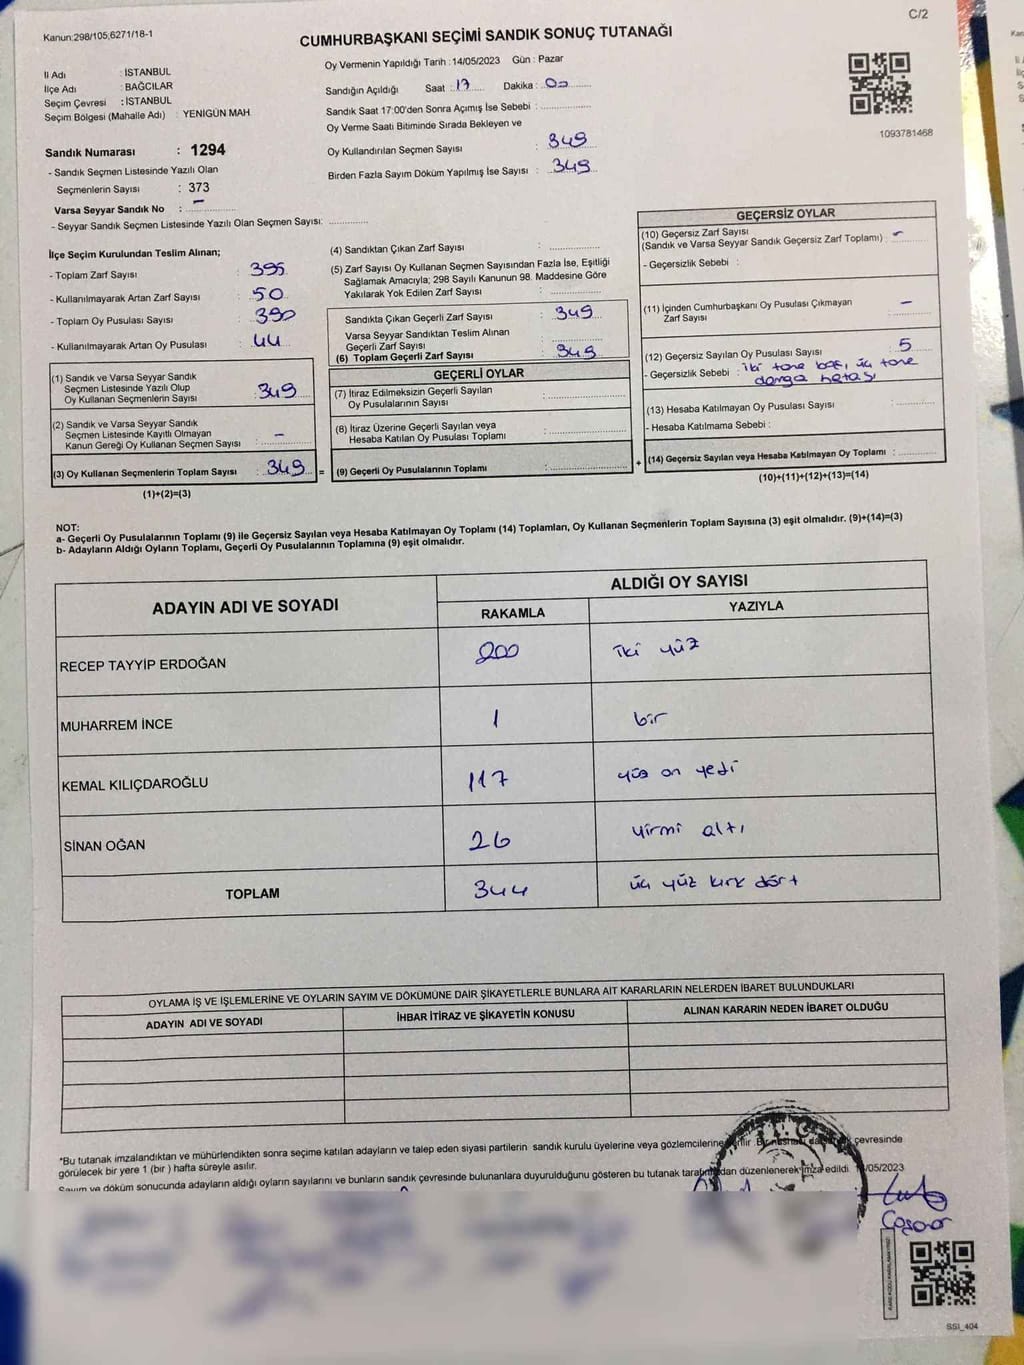 C/2
Kanun:298/105,6271/18-1
CUMHURBAŞKANI SEÇİMİ SANDIK SONUÇ TUTANAĞI
İl Adı : İSTANBUL
İlçe Adı : BAĞCILAR
Seçim Çevresi : İSTANBUL
Seçim Bölgesi (Mahalle Adı) : YENİGÜN MAH
Sandık Numarası : 1294
- Sandık Seçmen Listesinde Yazılı Olan
Seçmenlerin Sayısı : 373
Varsa Seyyar Sandık No : -
- Seyyar Sandık Seçmen Listesinde Yazılı Olan Seçmen Sayısı:
Oy Vermenin Yapıldığı Tarih : 14/05/2023 Gün : Pazar
Sandığın Açıldığı Saat : 17 Dakika : 00
Sandık Saat 17:00'den Sonra Açımış İse Sebebi :
Oy Verme Saati Bitiminde Sırada Bekleyen ve
Oy Kullandırılan Seçmen Sayısı : 349
Birden Fazla Sayım Döküm Yapılmış İse Sayısı : 349
1093781468
İlçe Seçim Kurulundan Teslim Alınan;
- Toplam Zarf Sayısı : 395
- Kullanılmayarak Artan Zarf Sayısı : 50
- Toplam Oy Pusulası Sayısı : 390
- Kullanılmayarak Artan Oy Pusulası : 44
(1) Sandık ve Varsa Seyyar Sandık
Seçmen Listesinde Yazılı Olup
Oy Kullanan Seçmenlerin Sayısı : 349
(2) Sandık ve Varsa Seyyar Sandık
Seçmen Listesinde Kayıtlı Olmayan
Kanun Gereği Oy Kullanan Seçmen Sayısı : -
(3) Oy Kullanan Seçmenlerin Toplam Sayısı : 349 =
(1)+(2)=(3)
(4) Sandıktan Çıkan Zarf Sayısı :
(5) Zarf Sayısı Oy Kullanan Seçmen Sayısından Fazla İse, Eşitliği
Sağlamak Amacıyla; 298 Sayılı Kanunun 98. Maddesine Göre
Yakılarak Yok Edilen Zarf Sayısı :
Sandıkta Çıkan Geçerli Zarf Sayısı : 349
Varsa Seyyar Sandıktan Teslim Alınan
Geçerli Zarf Sayısı
(6) Toplam Geçerli Zarf Sayısı : 349
GEÇERLİ OYLAR
(7) İtiraz Edilmeksizin Geçerli Sayılan
Oy Pusulalarının Sayısı :
(8) İtiraz Üzerine Geçerli Sayılan veya
Hesaba Katılan Oy Pusulası Toplamı :
(9) Geçerli Oy Pusulalarının Toplamı : +
GEÇERSİZ OYLAR
(10) Geçersiz Zarf Sayısı
(Sandık ve Varsa Seyyar Sandık Geçersiz Zarf Toplamı) : -
- Geçersizlik Sebebi :
(11) İçinden Cumhurbaşkanı Oy Pusulası Çıkmayan
Zarf Sayısı : -
(12) Geçersiz Sayılan Oy Pusulası Sayısı : 5
- Geçersizlik Sebebi : iki tane boş, üç tane
damga hatası
(13) Hesaba Katılmayan Oy Pusulası Sayısı :
- Hesaba Katılmama Sebebi :
(14) Geçersiz Sayılan veya Hesaba Katılmayan Oy Toplamı :
(10)+(11)+(12)+(13)=(14)
NOT:
a- Geçerli Oy Pusulalarının Toplamı (9) ile Geçersiz Sayılan veya Hesaba Katılmayan Oy Toplamı (14) Toplamları, Oy Kullanan Seçmenlerin Toplam Sayısına (3) eşit olmalıdır. (9)+(14)=(3)
b- Adayların Aldığı Oyların Toplamı, Geçerli Oy Pusulalarının Toplamına (9) eşit olmalıdır.
ADAYIN ADI VE SOYADI ALDIĞI OY SAYISI
RAKAMLA YAZIYLA
RECEP TAYYİP ERDOĞAN 200 iki yüz
MUHARREM İNCE 1 bir
KEMAL KILIÇDAROĞLU 117 yüz on yedi
SİNAN OĞAN 26 yirmi altı
TOPLAM 344 üç yüz kırk dört
OYLAMA İŞ VE İŞLEMLERİNE VE OYLARIN SAYIM VE DÖKÜMÜNE DAİR ŞİKAYETLERLE BUNLARA AİT KARARLARIN NELERDEN İBARET BULUNDUKLARI
ADAYIN ADI VE SOYADI İHBAR İTİRAZ VE ŞİKAYETİN KONUSU ALINAN KARARIN NEDEN İBARET OLDUĞU
*Bu tutanak imzalandıktan ve mühürlendikten sonra seçime katılan adayların ve talep eden siyasi partilerin sandık kurulu üyelerine veya gözlemcilerine verilir. Bir nüshası da sandık çevresinde
görülecek bir yere 1 (bir) hafta süreyle asılır.
Sayım ve döküm sonucunda adayların aldığı oyların sayılarını ve bunların sandık çevresinde bulunanlara duyurulduğunu gösteren bu tutanak tarafımızdan düzenlenerek imza edildi. /05/2023
SSI_404